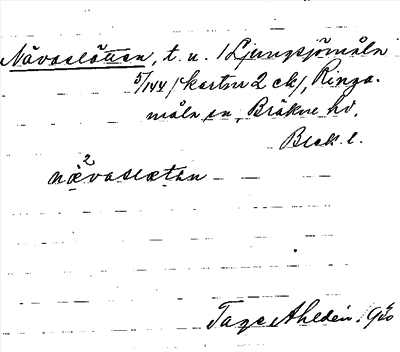 Nävaslätten, t. u. /Ljungsjömåla
5/144 /kartan 2 ck/, Ringa-
måla sn, Bräkne hd,
Blek. l.
næ²vaslætan
Tage Ahldén.